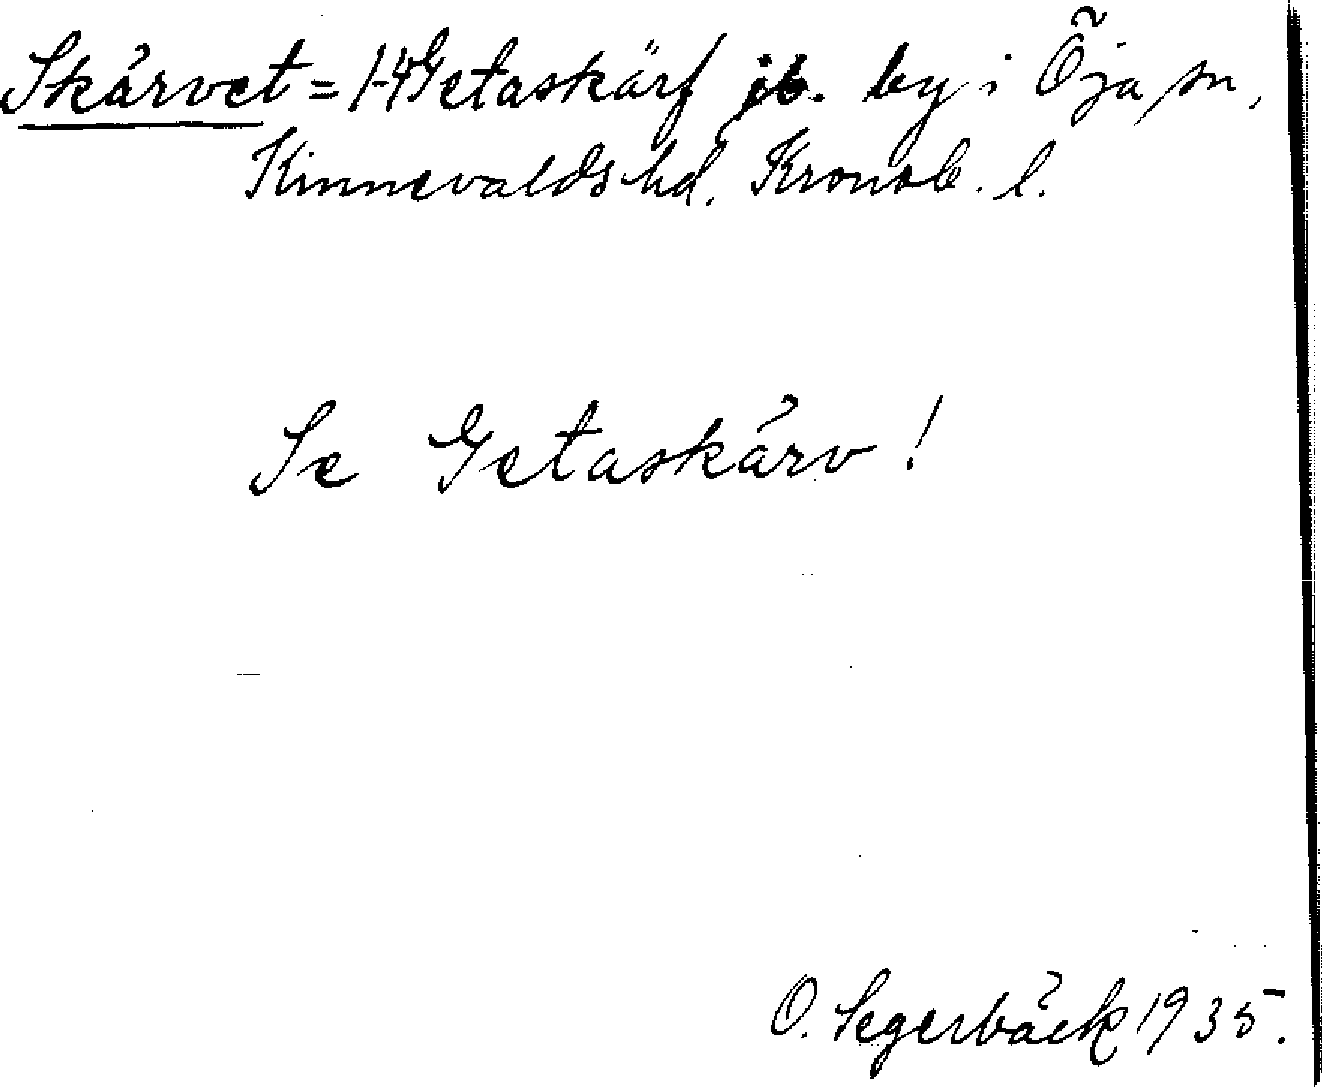 Skärvet = 1-4 Getaskärf jb. by i Öja sn,
Kinnevalds hd. Kronob. l.
Se Getaskärv!
O. Segerbäck 1935.